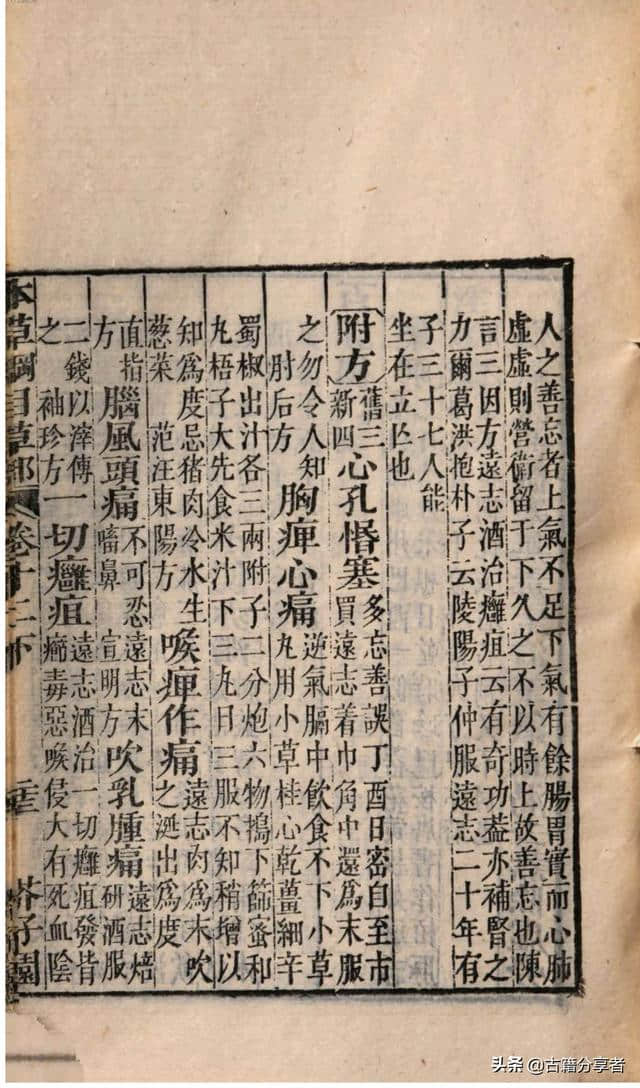 人之善忘者上氣不足下氣有餘腸胃實而心肺
虛虛則營衞留于下久之不以時上故善忘也陳
言三因方遠志酒治癰疽云有奇功葢亦補腎之
力爾葛洪抱朴子云陵陽子仲服遠志二十年有
子三十七人能
坐在立亾也
附方 舊三新四 心孔惛塞 多忘善誤丁酉日密自至市
買遠志着巾角中還爲末服
之勿令人知
肘后方 胸痺心痛 逆氣膈中飲食不下小草
丸用小草桂心乾薑細辛
蜀椒出汁各三兩附子二分炮六物搗下篩蜜和
丸梧子大先食米汁下三丸日三服不知稍增以
知爲度忌猪肉冷水生
葱菜 范汪東陽方 喉痺作痛 遠志肉爲末吹
之涎出爲度
直指
方 腦風頭痛 不可忍遠志末
㗜鼻 宣明方 吹乳腫痛 遠志焙
研酒服
二錢以滓傅
之 袖珍方 一切癰疽 遠志酒治一切癰疽發背
癤毒惡候侵大有死血陰
本草綱目草部 卷十二下 芥子園
头条 @古籍分享者